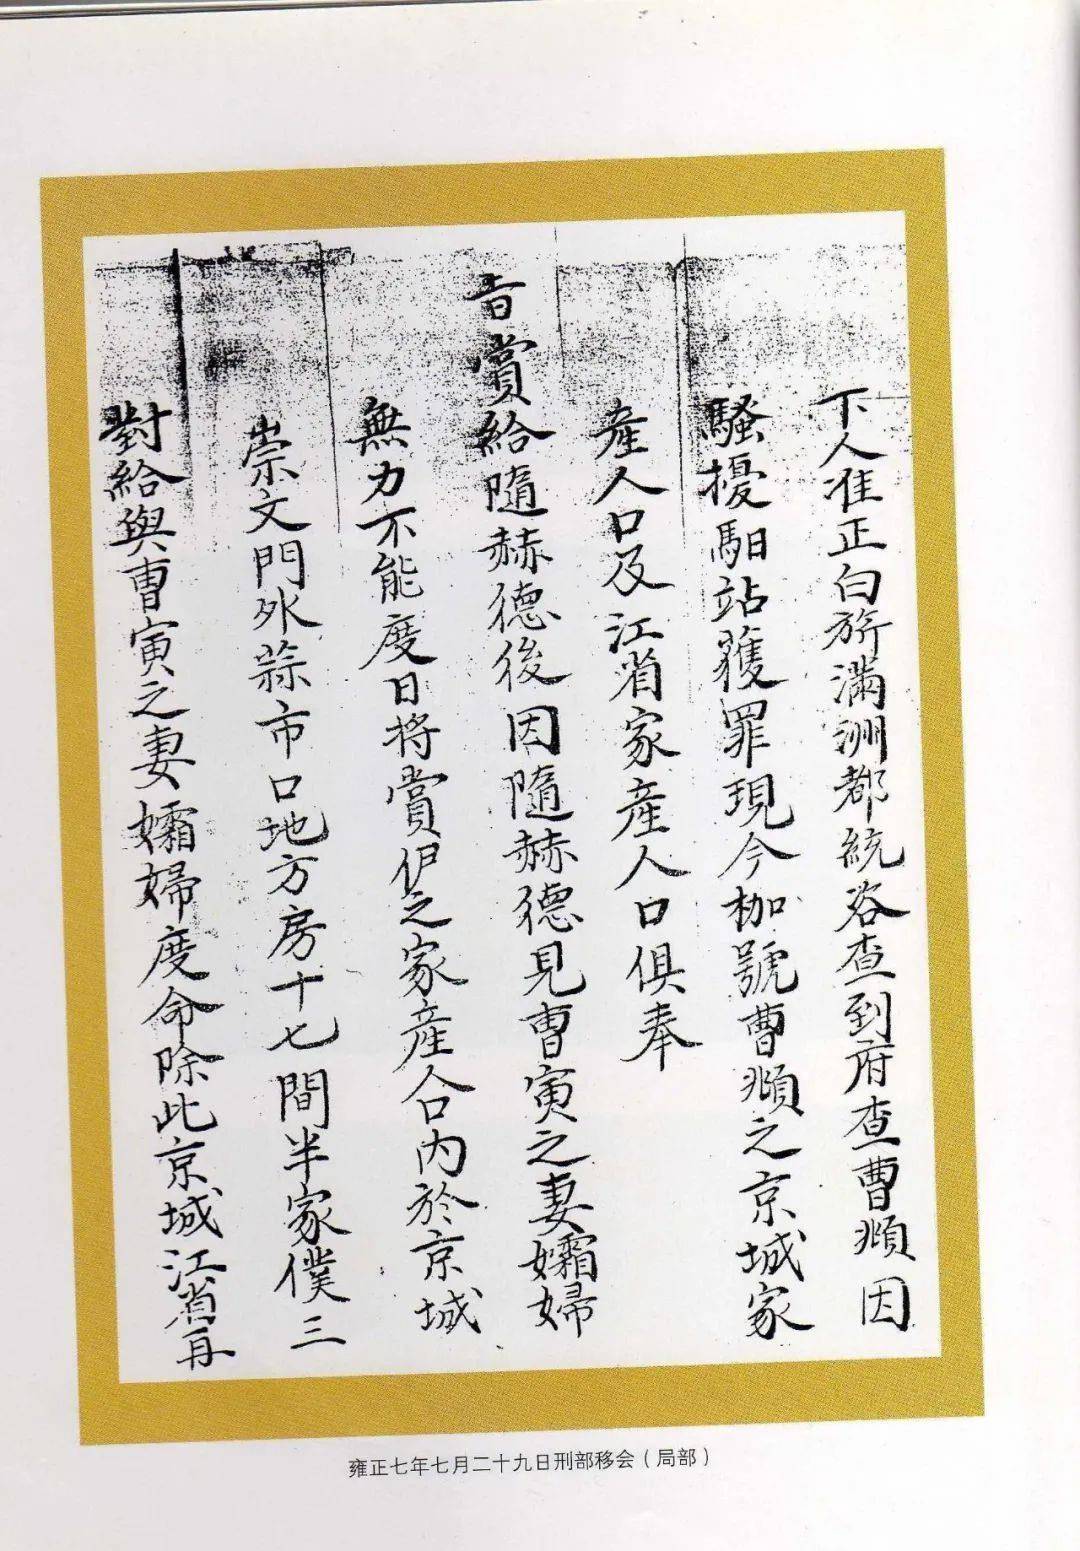 下人准正白旂滿洲都統咨查到府查曹頫因
騷擾馹站獲罪現今枷號曹頫之京城家
産人口及江省家産人口俱奉
旨賞給隨赫德後因隨赫德見曹寅之妻孀婦
無力不能度日将賞伊之家産合内於京城
崇文門外蒜市口地方房十七間半家僕三
對給與曹寅之妻孀婦度命除此京城江省再
雍正七年七月二十九日刑部移会（局部）